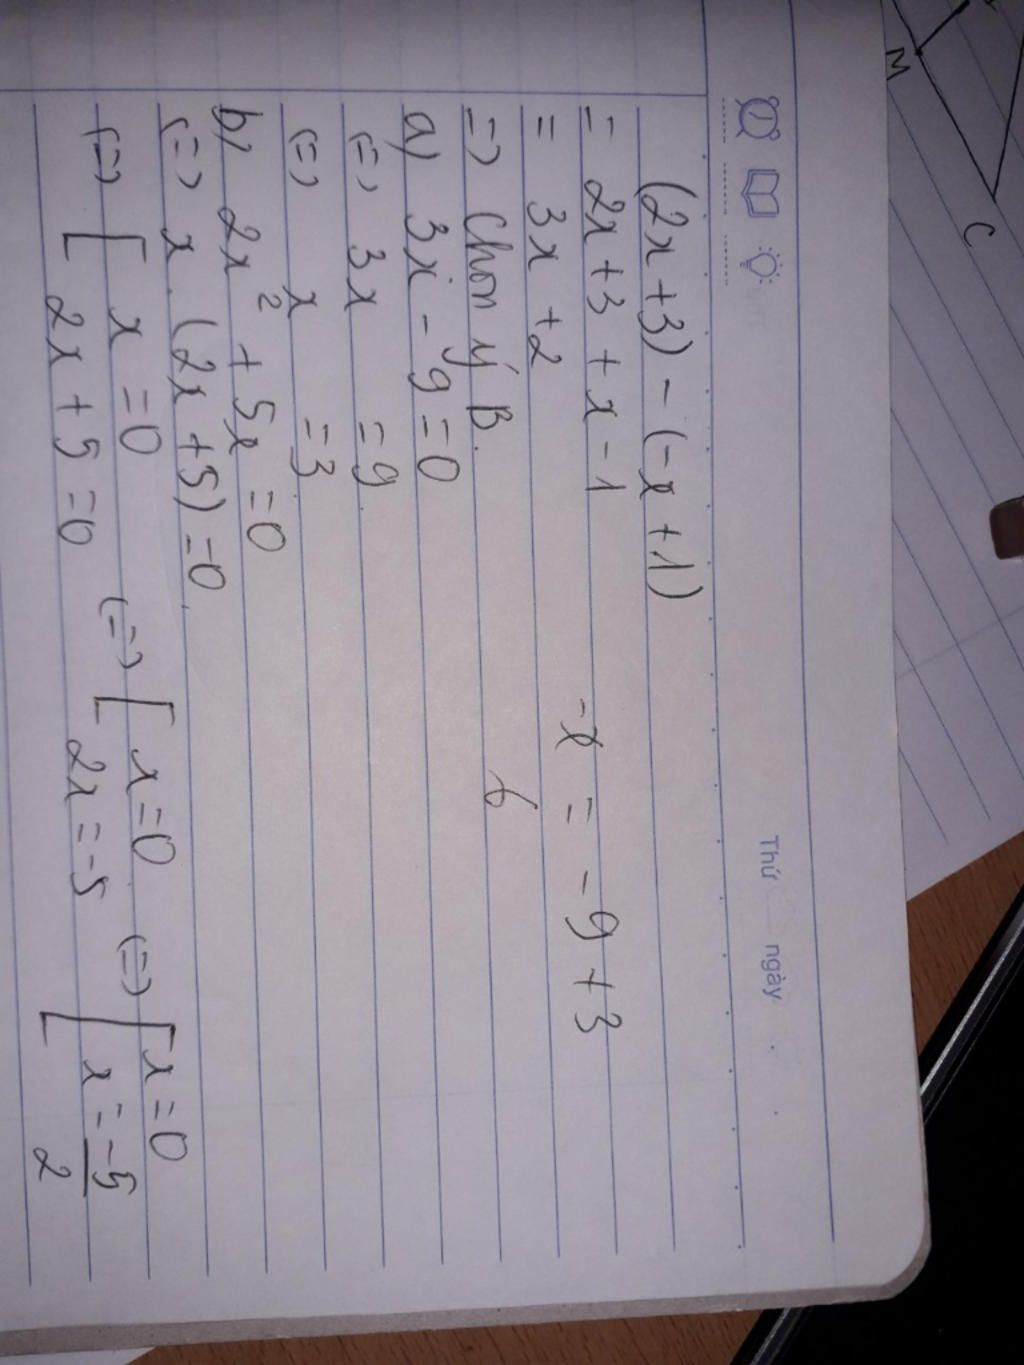 M
C
Thứ ngày
(2x+3) - (-x+1)
= 2x+3 + x-1
-x = -9+3
= 3x +2
6
=> Chọn ý B.
a) 3x - 9 = 0
(=) 3x = 9
(=) x = 3
b) 2x² + 5x = 0
(=) x. (2x +5) = 0
(=) [ x = 0 (=) [ x = 0 (=) [ x = 0
2x + 5 = 0 2x = -5 x = -5/2